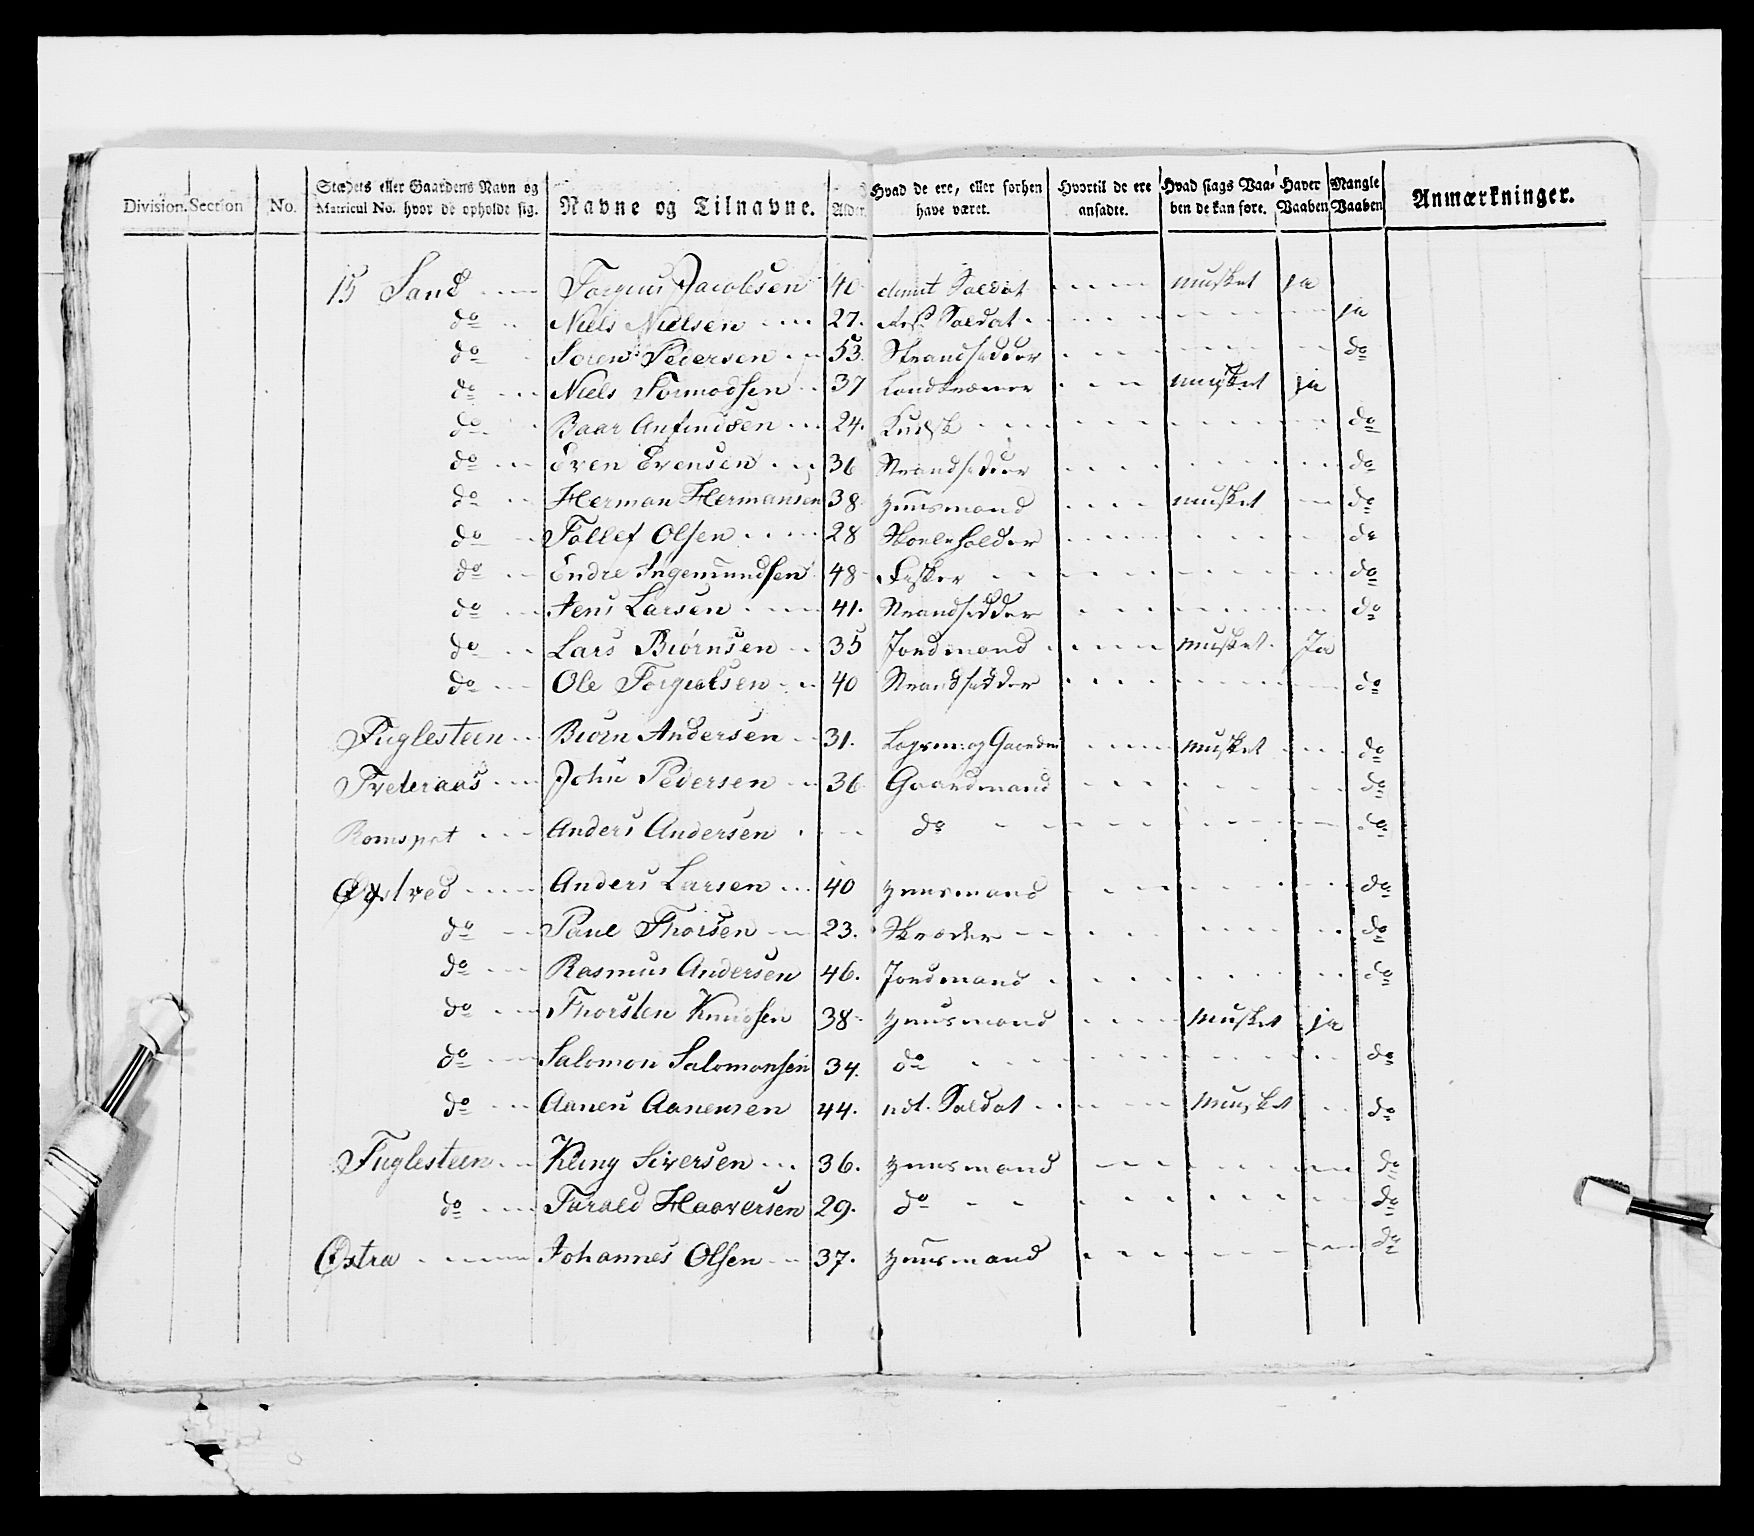 Division. Section No. Stædets eller Gaardens Navn og Matricul No. hvor de opholde sig. Navne og Tilnavne. Alder. Hvad de ere, eller forhen have været. Hvortil de ere ansadte. Hvad slags Vaaben de kan føre. Haver Vaaben Mangle Vaaben Anmærkninger.
15 Sand Torgius Jacobsen 40 dimit Soldat musket ja
do Niels Nielsen 27. Soldat ja
do Søren Pedersen 53. Strandsidder do
do Niels Tormodsen 37 Landkræmer musket ja
do Baar Anfindsen 24. Kudsk do
do Even Evensen 36 Strandsidder do
do Herman Hermansen 38 Huusmand musket do
do Tollef Olsen 28 Skoleholder do
do Endre Ingemundsen 48 Fisker do
do Jens Larsen 41. Strandsidder do
do Lars Biørnsen 35 Jordmand musket Ja
do Ole Torgielsen 40 Strandsidder do
Fuglesteen Biørn Andersen 31. musket do
Tveteraas John Pedersen 36 Gaardmand do
Anders Andersen do do
Anders Larsen 40 Huusmand do
do Paul Thorsen 23. Skræder do
do Rasmus Andersen 46. Jordmand do
do Thorsten Knudsen 38 Huusmand musket ja
do Salomon Salomonsen 34. do do
do Aanen Aanensen 44. udt. Soldat musket do
Fuglesteen Siversen 36. Huusmand do
do Tarald Haaversen 29. do do
Østra Johannes Olsen 37. Huusmand do